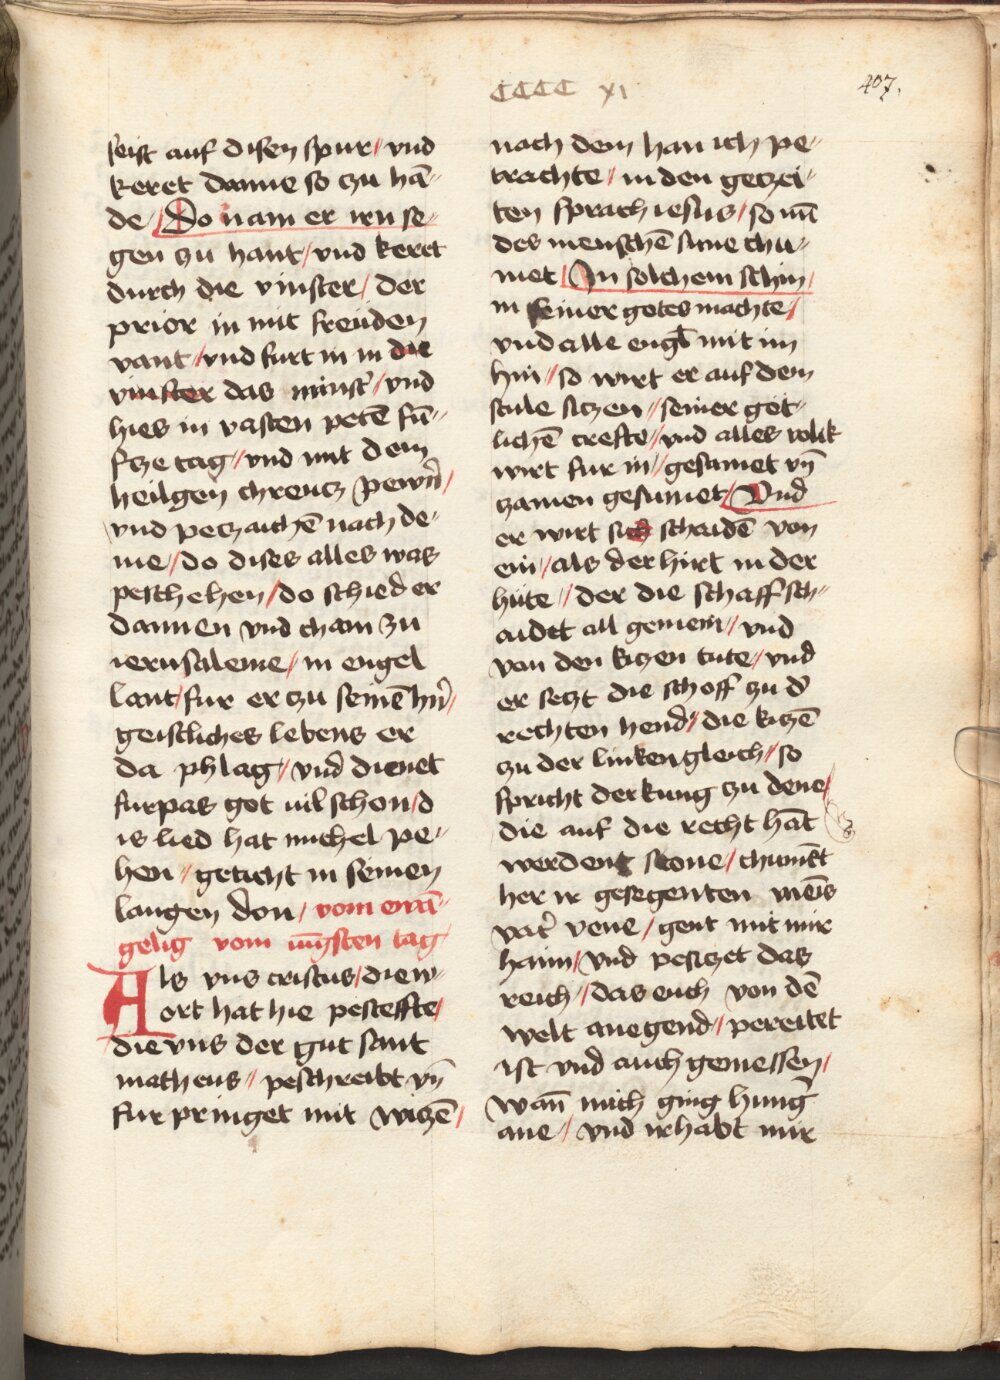 CCCC XI
407.
seist auf disen spur / vnd
keret danne so zu hā-
de / Do nam er irn se-
gen zu hant / vnd keret
durch die vinster / der
prior in mit freuden
vant / vnd furt in in die
vinster das minst̄ / vnd
hies in vasten petē fū-
fze tag / vnd mit dem
heilgen chreucz pewn̄ /
vnd peczaichē nach de-
me / do dises alles was
peschehen / do schied er
dannen vnd cham zu
ierusaleme / in engel
lant / fur er zu seinē hn̄ /
geistliches lebens er
da phlag / vnd dienet
furpas got uil schon / d
is lied hat michel pe-
hen / geticht in seinen
langen don / vom ewā-
gelig vom iungsten tag
Als vns cristus / die w-
ort hat hie pesteffte /
die vns der gut sant
matheus / peschreibt vn̄
fur pringet mit wiczē /
nach dem han ich pe-
trachte / in den geczei-
ten sprach iesus / so nu
des menschē sune chu-
met / In solchem schin /
in seiner gotes machte /
vnd alle engl mit im
hin / so wirt er auf dem
stule siczen / seiner got-
lichē crefte / vnd alles volk
wirt fur in / gesamet vn̄
zamen gesumet / Vnd
er wirt sich schaidē von
ein / als der hirt in der
hute / der die schaff sch-
aidet all gemein / vnd
von den kiczen tute / vnd
er seczt die schoff zu d̄
rechten hend / die kiczē
zu der linken gleich / so
spricht der kung zu dene /
die auf die recht hāt
werdent stone / chumēt
her ir gesegenten meīs
vat̄ vene / gent mit mir
haim / vnd pesiczet das
reich / das euch von dē
welt anegend / pereitet
ist vnd auch gemessen /
wan̄ mich ging hunḡ
ane / vnd ir habt mir